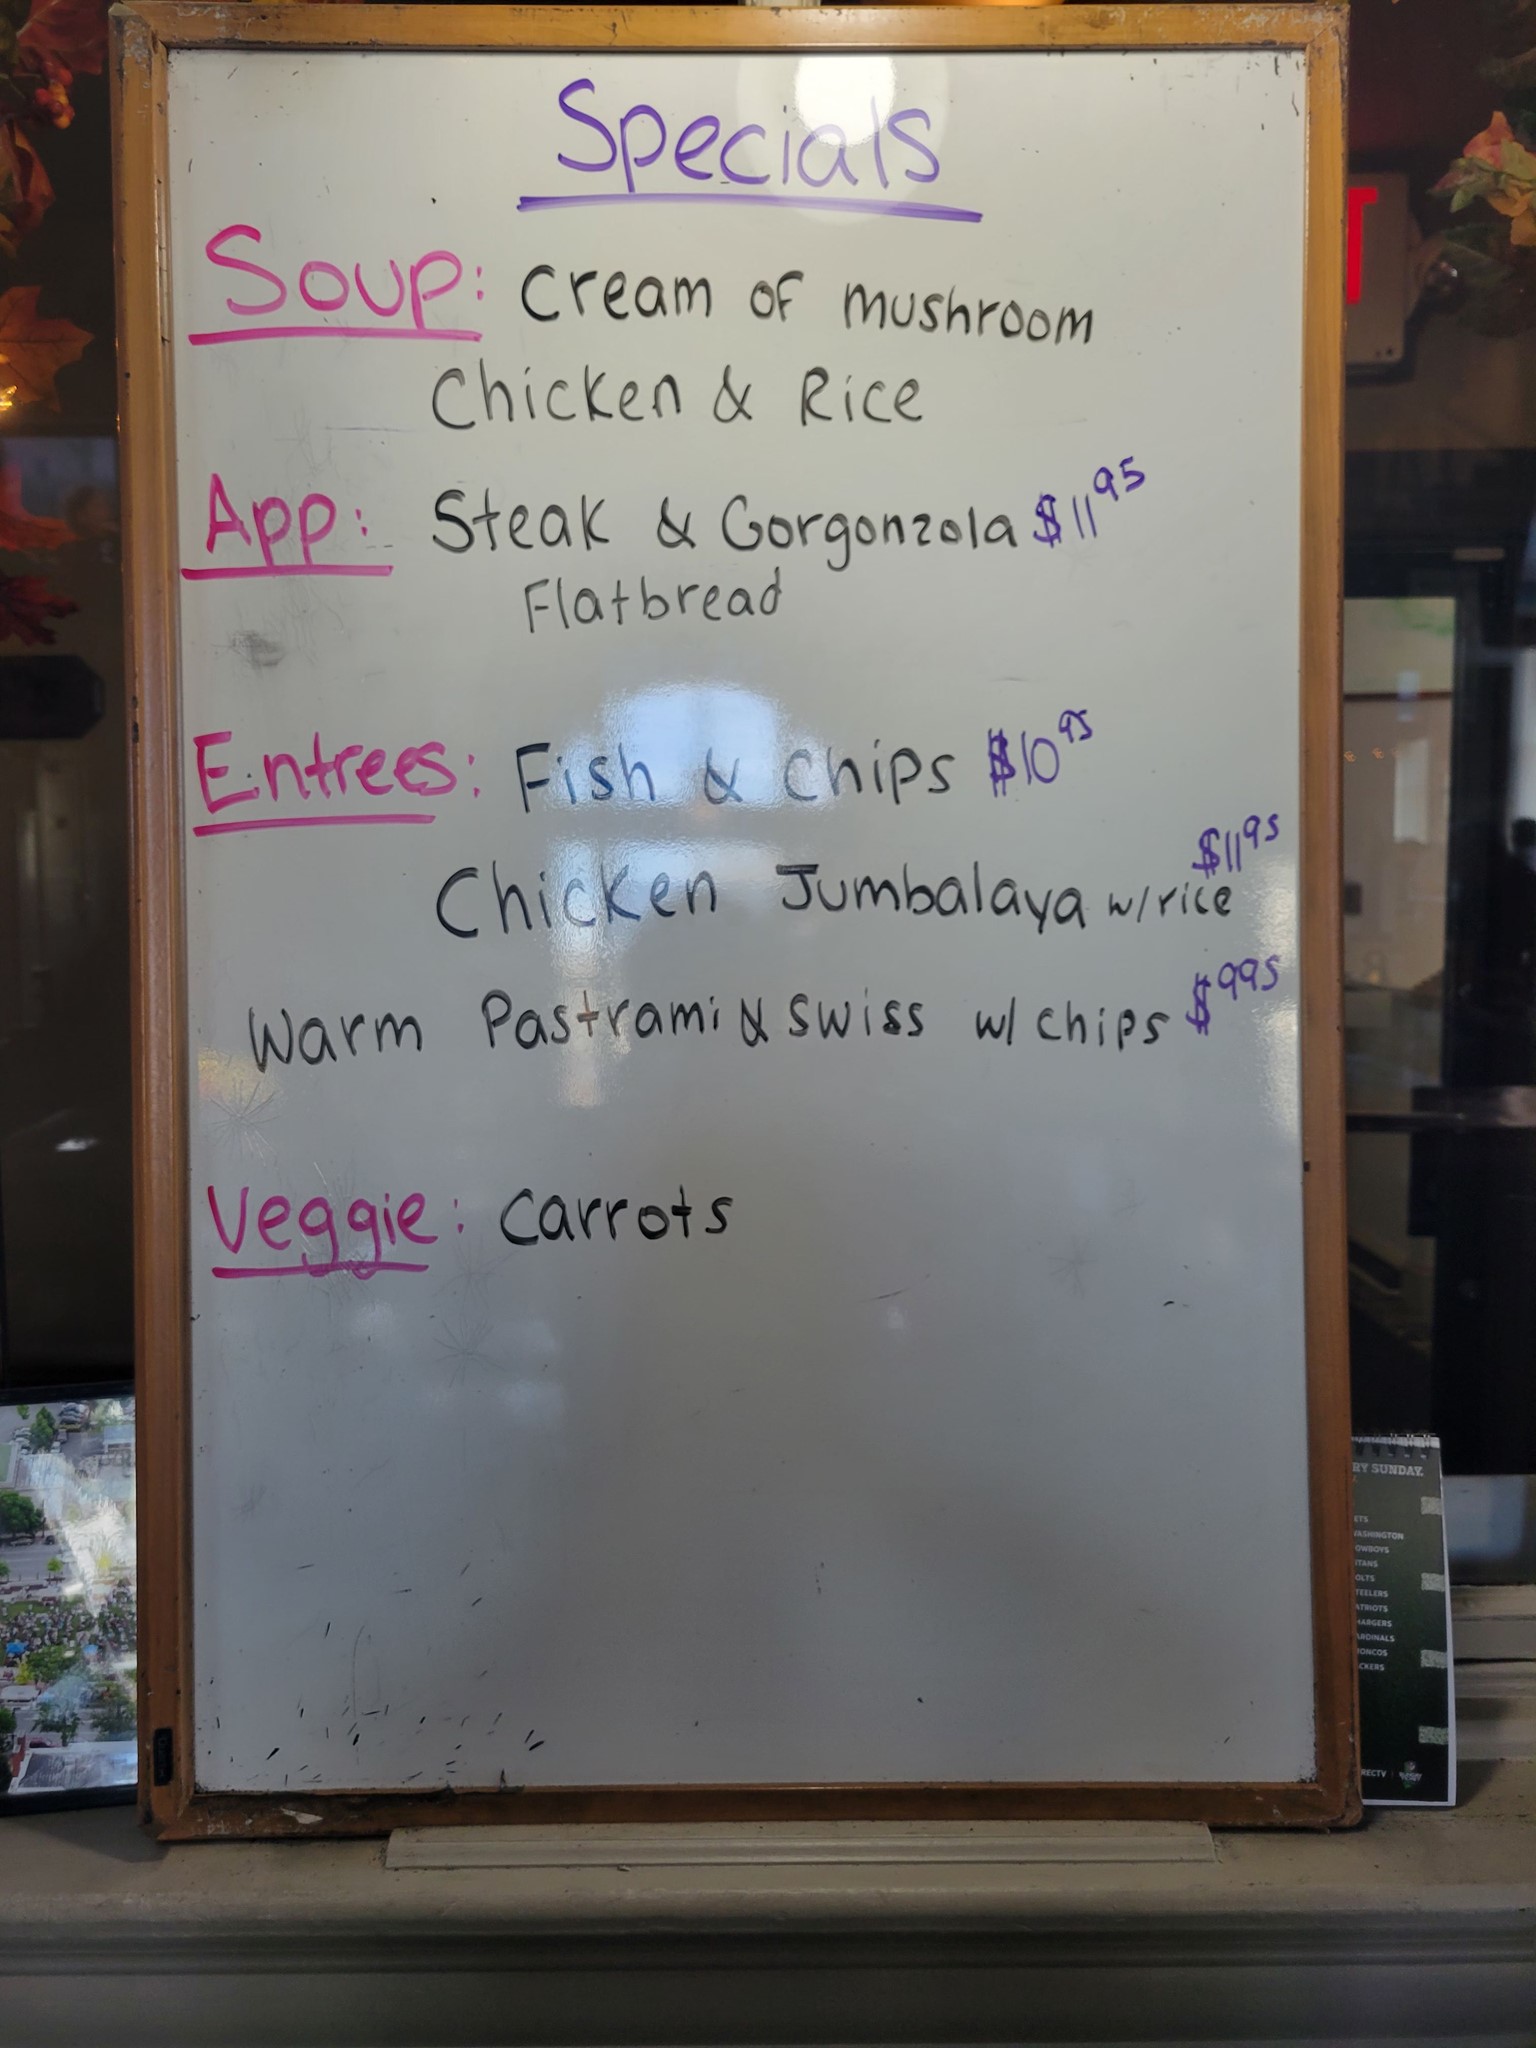 Specials
Soup: Cream of mushroom
Chicken & Rice
App: Steak & Gorgonzola $11 95
Flatbread
Entrees: Fish & Chips $10 95
$11 95
Chicken Jumbalaya w/rice
Warm Pastrami & Swiss w/ chips $9 95
Veggie: Carrots
T
RY SUNDAY.
ETS
WASHINGTON
OWBOYS
ITANS
OLTS
TEELERS
ATRIOTS
HARGERS
ARDINALS
RONCOS
CKERS
RECTV